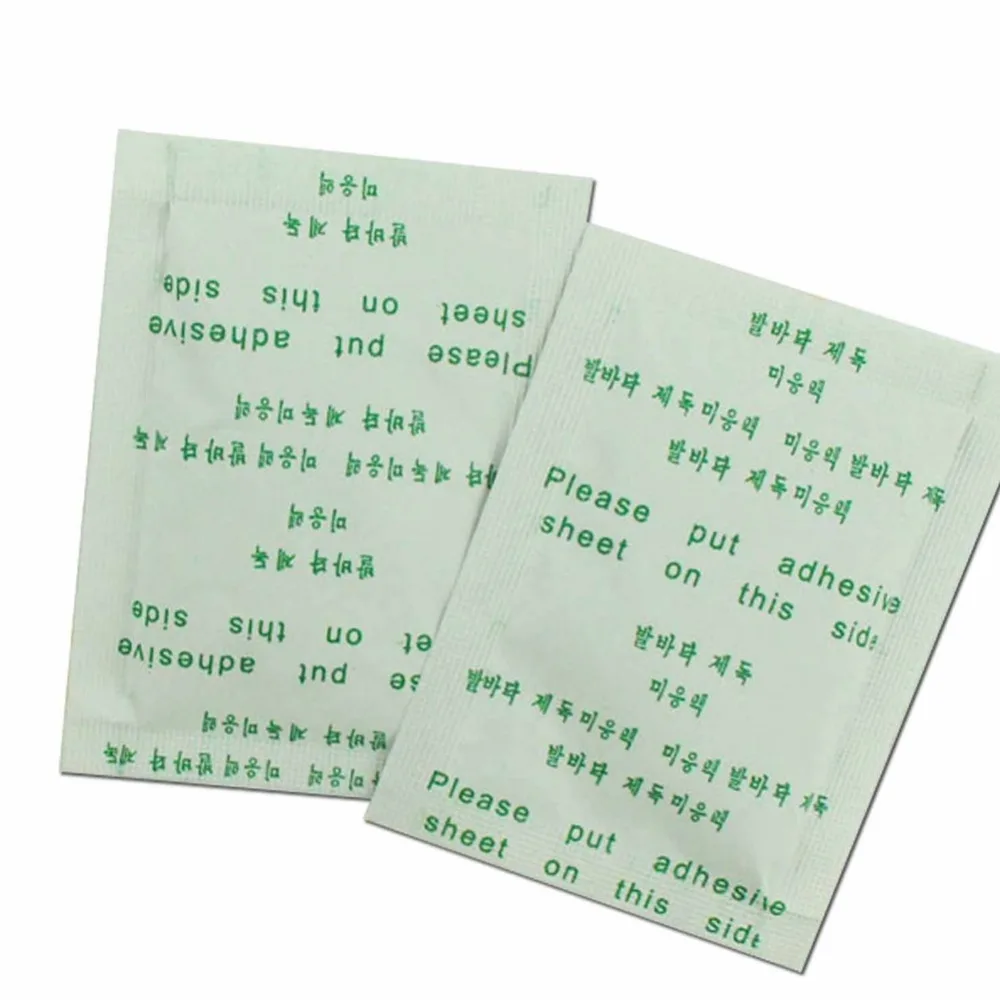 미응력 미응력 발바닥 제독
발바닥 제독미응력
put adhesive
on this side
발바닥 제독
미응력
제독미응력 미응력 발바닥 제독
발바닥 제독미응력
Please put adhesive
sheet on this side
발바닥 제독
미응력
발바닥 제독
미응력
발바닥 제독미응력 미응력 발바닥 제독
발바닥 제독미응력
Please put adhesive
sheet on this side
발바닥 제독
미응력
발바닥 제독미응력 미응력 발바닥 제독
발바닥 제독미응력
Please put adhesive
sheet on this side